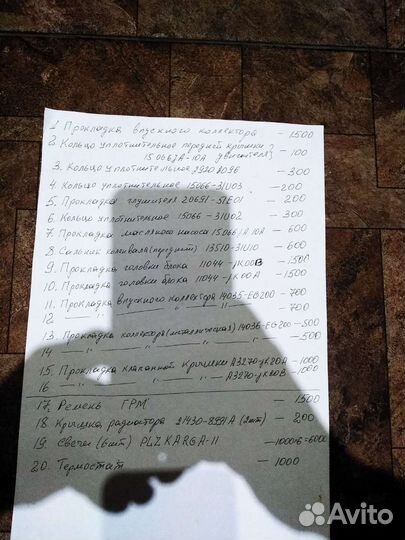 1. Прокладка впускного коллектора - 1500
2. Кольцо уплотнительное передней крышки
15066ZA-10A двигателя? - 100
3. Кольцо уплотнительное - 300
4. Кольцо уплотнительное 15066-31U03 - 200
5. Прокладка глушителя 20691-51E01 - 200
6. Кольцо уплотнительное 15066-31U02 - 300
7. Прокладка масляного насоса 15066 10A - 600
8. Сальник коленвала (передний) 13510-31U10 - 600
9. Прокладка головки блока 11044-jk00B - 1500
10. Прокладка головки блока 11044-jk00A - 1500
11. Прокладка впускного коллектора 14035-EG200 - 700
12 — " — " — " — - 700
13. Прокладка коллектора (металлическая) 14036-EG200 - 500
14 — " — " — " — - 500
15. Прокладка клапанной крышки A3270-jk20A - 1000
16 — " — " — A3270-jk20B - 1000
17. Ремень ГРМ - 1500
18. Крышка радиатора 21430-8991A (2шт) - 200
19. Свечи (6шт) PLZKAR6A-11 - 1000*6=6000
20. Термостат - 1000
Avito